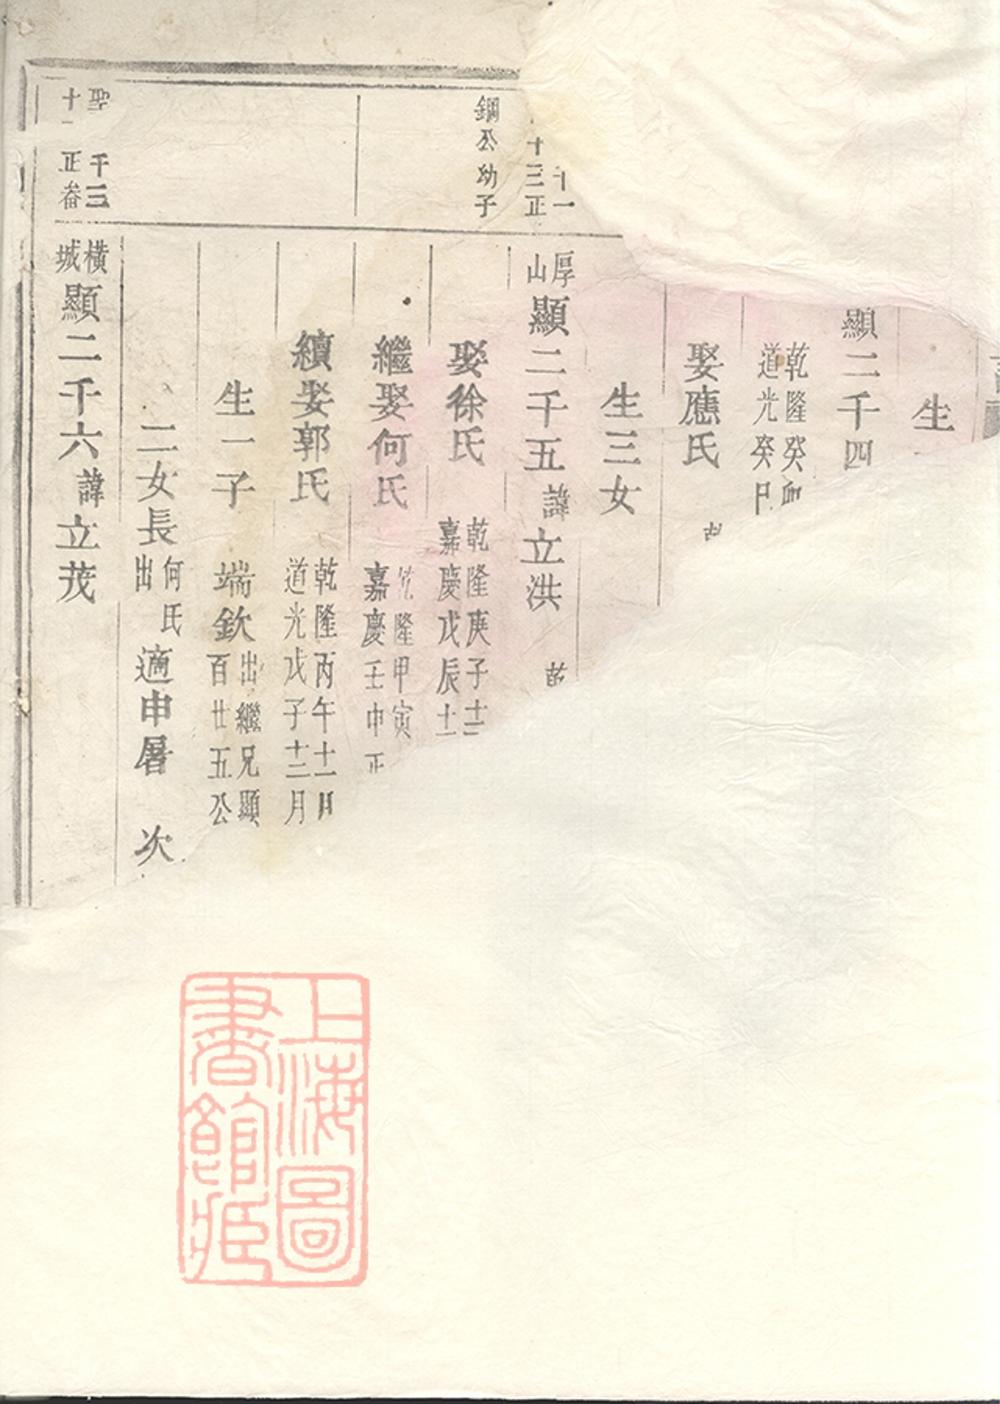 生
顯二千四
乾隆癸
道光癸
娶應氏
生三女
十一
十三正
厚山顯二千五諱立洪
乾
鋼公幼子
娶徐氏
乾隆庚子十二
嘉慶戊辰十
繼娶何氏
乾隆甲寅
嘉慶壬申正
續娶郭氏
乾隆丙午十一月
道光戊子十二月
生一子
端欽
出繼兄顯
百廿五公
二女長何氏出適申屠
次
聖
千三
十
正畨
橫城顯二千六諱立茂
上海圖書館藏